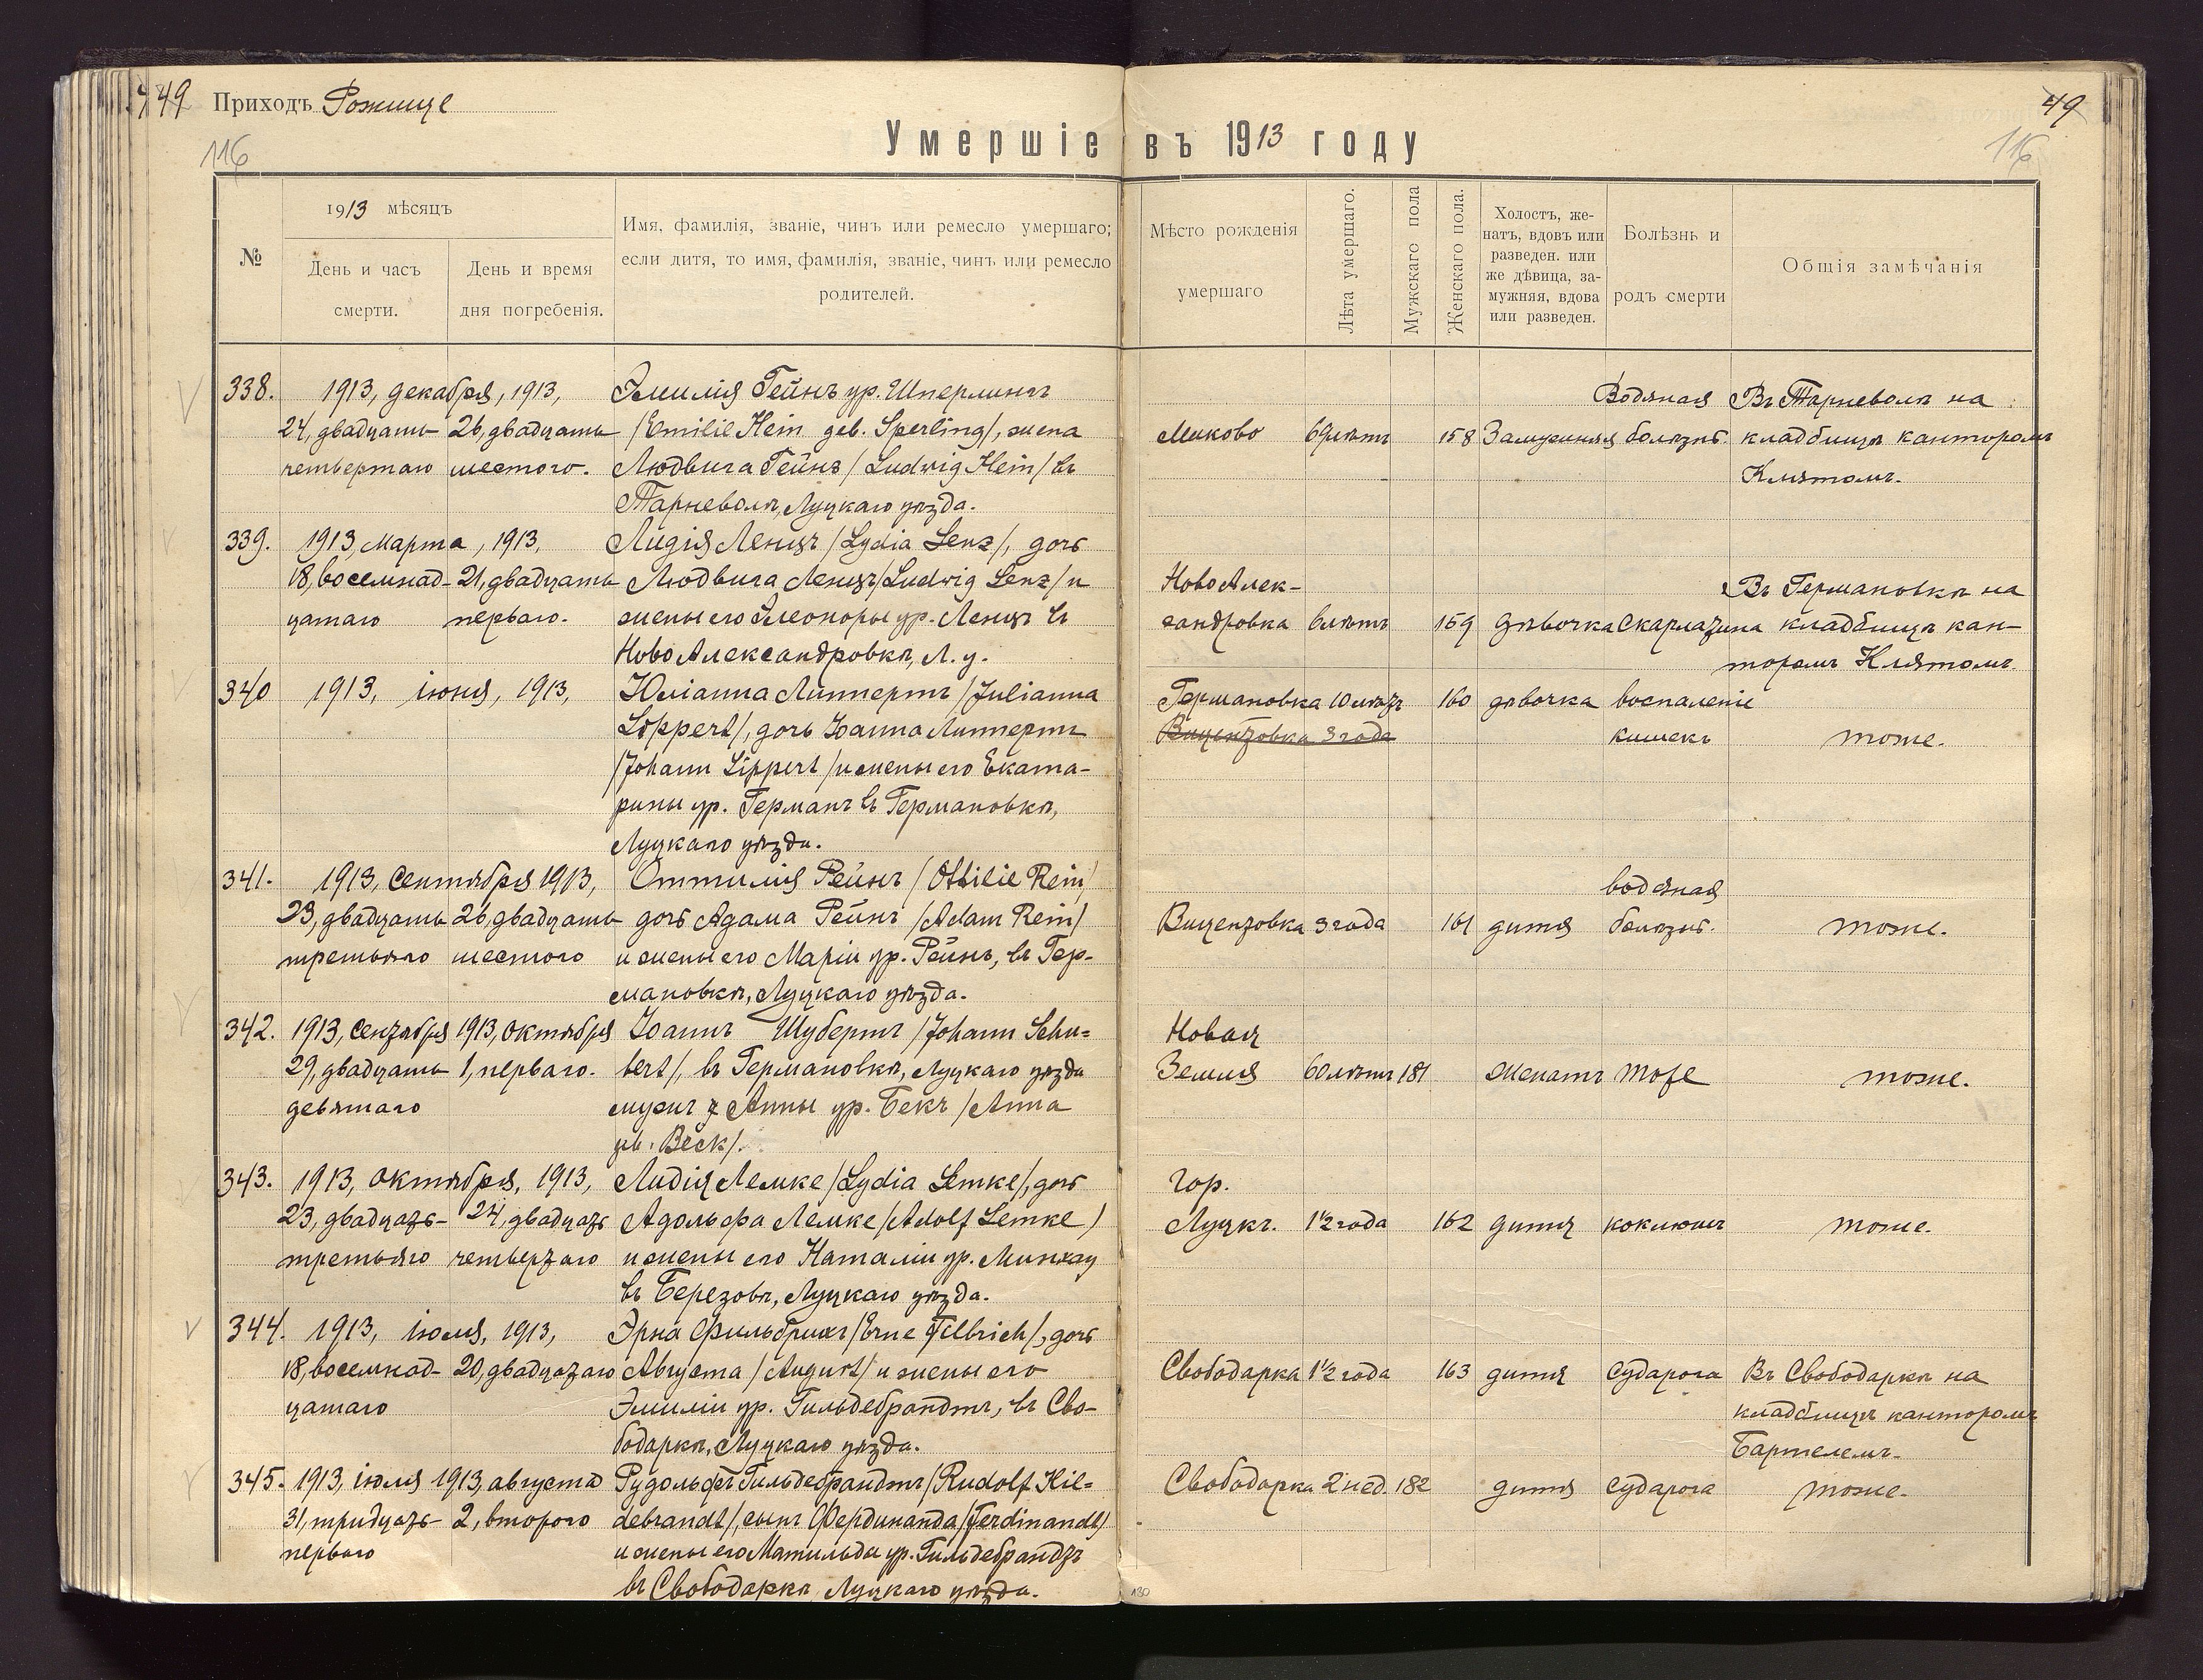 449 Приходъ Рожище
49
116
116
Умершіе въ 1913 году
№
1913 мѣсяцъ
День и часъ смерти.
День и время дня погребенія.
Имя, фамилія, званіе, чинъ или ремесло умершаго;
если дитя, то имя, фамилія, званіе, чинъ или ремесло
родителей.
Мѣсто рожденія
умершаго
Лѣта умершаго.
Мужскаго пола
Женскаго пола.
Холостъ, же-
натъ, вдовъ или
разведен. или
же дѣвица, за-
мужняя, вдова
или разведен.
Болѣзнь и
родъ смерти
Общія замѣчанія
338. 1913, декабря, 1913, Эмилія Гейнъ ур. Шперлингъ
Водяная Въ Тарневолѣ на
24, двадцать 26, двадцать /Emilie Hein geb. Sperling/, жена
Маково лѣтъ 158 Замужняя болѣзнь. кладбищѣ канторомъ
четвертаго шестого. Людвига Гейнъ /Ludwig Hein/ въ
Клятомъ.
Тарневолѣ, Луцкаго уѣзда.
339. 1913, марта, 1913, Лидія Ленцъ /Lydia Lenz/, дочь
18, восемнад- 21, двадцать Людвига Ленцъ /Ludwig Lenz/ и
Ново Алек- Въ Германовкѣ на
цатаго перваго. жены его Элеоноры ур. Ленцъ въ
сандровка 6 лѣтъ 159 дѣвочка скарлатина кладбищѣ кан-
Ново Александровкѣ, Л. у.
торомъ Клятомъ
340 1913, іюня, 1913, Юліанна Липпертъ /Julianna
Германовка 10 лѣтъ 160 дѣвочка воспаленіе
Lippert/, дочь Іоанна Липпертъ
Вицентовка 3 года кишекъ тоже.
/Johann Lippert/ и жены его Ката-
рины ур. Германъ въ Германовкѣ,
Луцкаго уѣзда.
341. 1913, Сентября 1913, Оттилія Рейнъ /Ottilie Rein/
водяная
23, двадцать 26, двадцать дочь Адама Рейнъ /Adam Rein/
Вицентовка 3 года 161 дитя болѣзнь. тоже.
третьяго шестого и жены его Маріи ур. Рейнъ, въ Гер-
мановкѣ, Луцкаго уѣзда.
342. 1913, Сентября 1913, Октября Іоаннъ Шубертъ /Johann Schu-
Новая
29, двадцать 1, перваго. bert/, въ Германовкѣ, Луцкаго уѣзда
Земля 60 лѣтъ 181 Женатъ тоже.
девятаго мужъ Анны ур. Бекъ /Anna
Beck/.
343. 1913, Октября, 1913, Лидія Лемке /Lydia Lemke/, дочь
гор.
23, двадцать- 24, двадцать Адольфа Лемке /Adolf Lemke/
Луцкъ. 1½ года 162 дитя коклюшъ тоже.
третьяго четвертаго и жены его Наталіи ур. Минхау
въ Березовѣ, Луцкаго уѣзда.
344. 1913, іюля, 1913, Эрна Фильбрихъ /Erne Filbrich/, дочь
18, восемнад- 20, двадцатаго Августа /August/ и жены его
Свободарка 1½ года 163 дитя судорога Въ Свободаркѣ на
цатаго Эмиліи ур. Гильдебрандтъ, въ Сво-
кладбищѣ канторомъ
бодаркѣ, Луцкаго уѣзда.
Бартелемъ.
345. 1913, іюля 1913, августа Рудольфъ Гильдебрандтъ /Rudolf Hil-
Свободарка 2 нед. 182 дитя судорога тоже.
31, тридцать- 2, второго debrandt/, сынъ Фердинанда /Ferdinandt/
перваго и жены его Матильды ур. Гильдебрандтъ
въ Свободаркѣ, Луцкаго уѣзда.
130